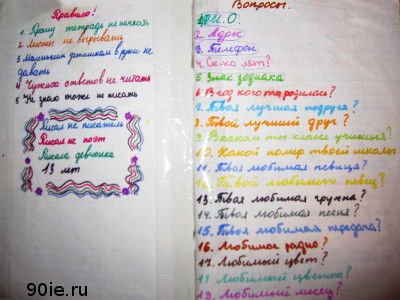 Правило!
1. Прошу тетрадь не пачкать
2. Листы не вырывать
3 Маленьким детишкам в руки не
давать
4 Чужих ответов не читать
5 Не знаю тоже не писать
Писал не писатель
Писал не поэт
Писала девчонка
13 лет
Вопросы.
1. Ф.И.О.
2. Адрес
3. Телефон.
4. Ск-ко лет?
5 Знак зодиака
6. В год кого ты родилась?
7. Твоя лучшая подруга?
8. Твой лучший друг?
9. В каком ты классе учишься?
10. Какой номер твоей школы
11. Твоя любимая певица?
12. Твой любимый певец?
13. Твоя любимая группа?
14. Твоя любимая песня?
15. Твоя любимая передача?
16. Любимое радио?
17. Любимый цвет?
18 Любимый цветок?
19. Любимый месяц?
90ie.ru